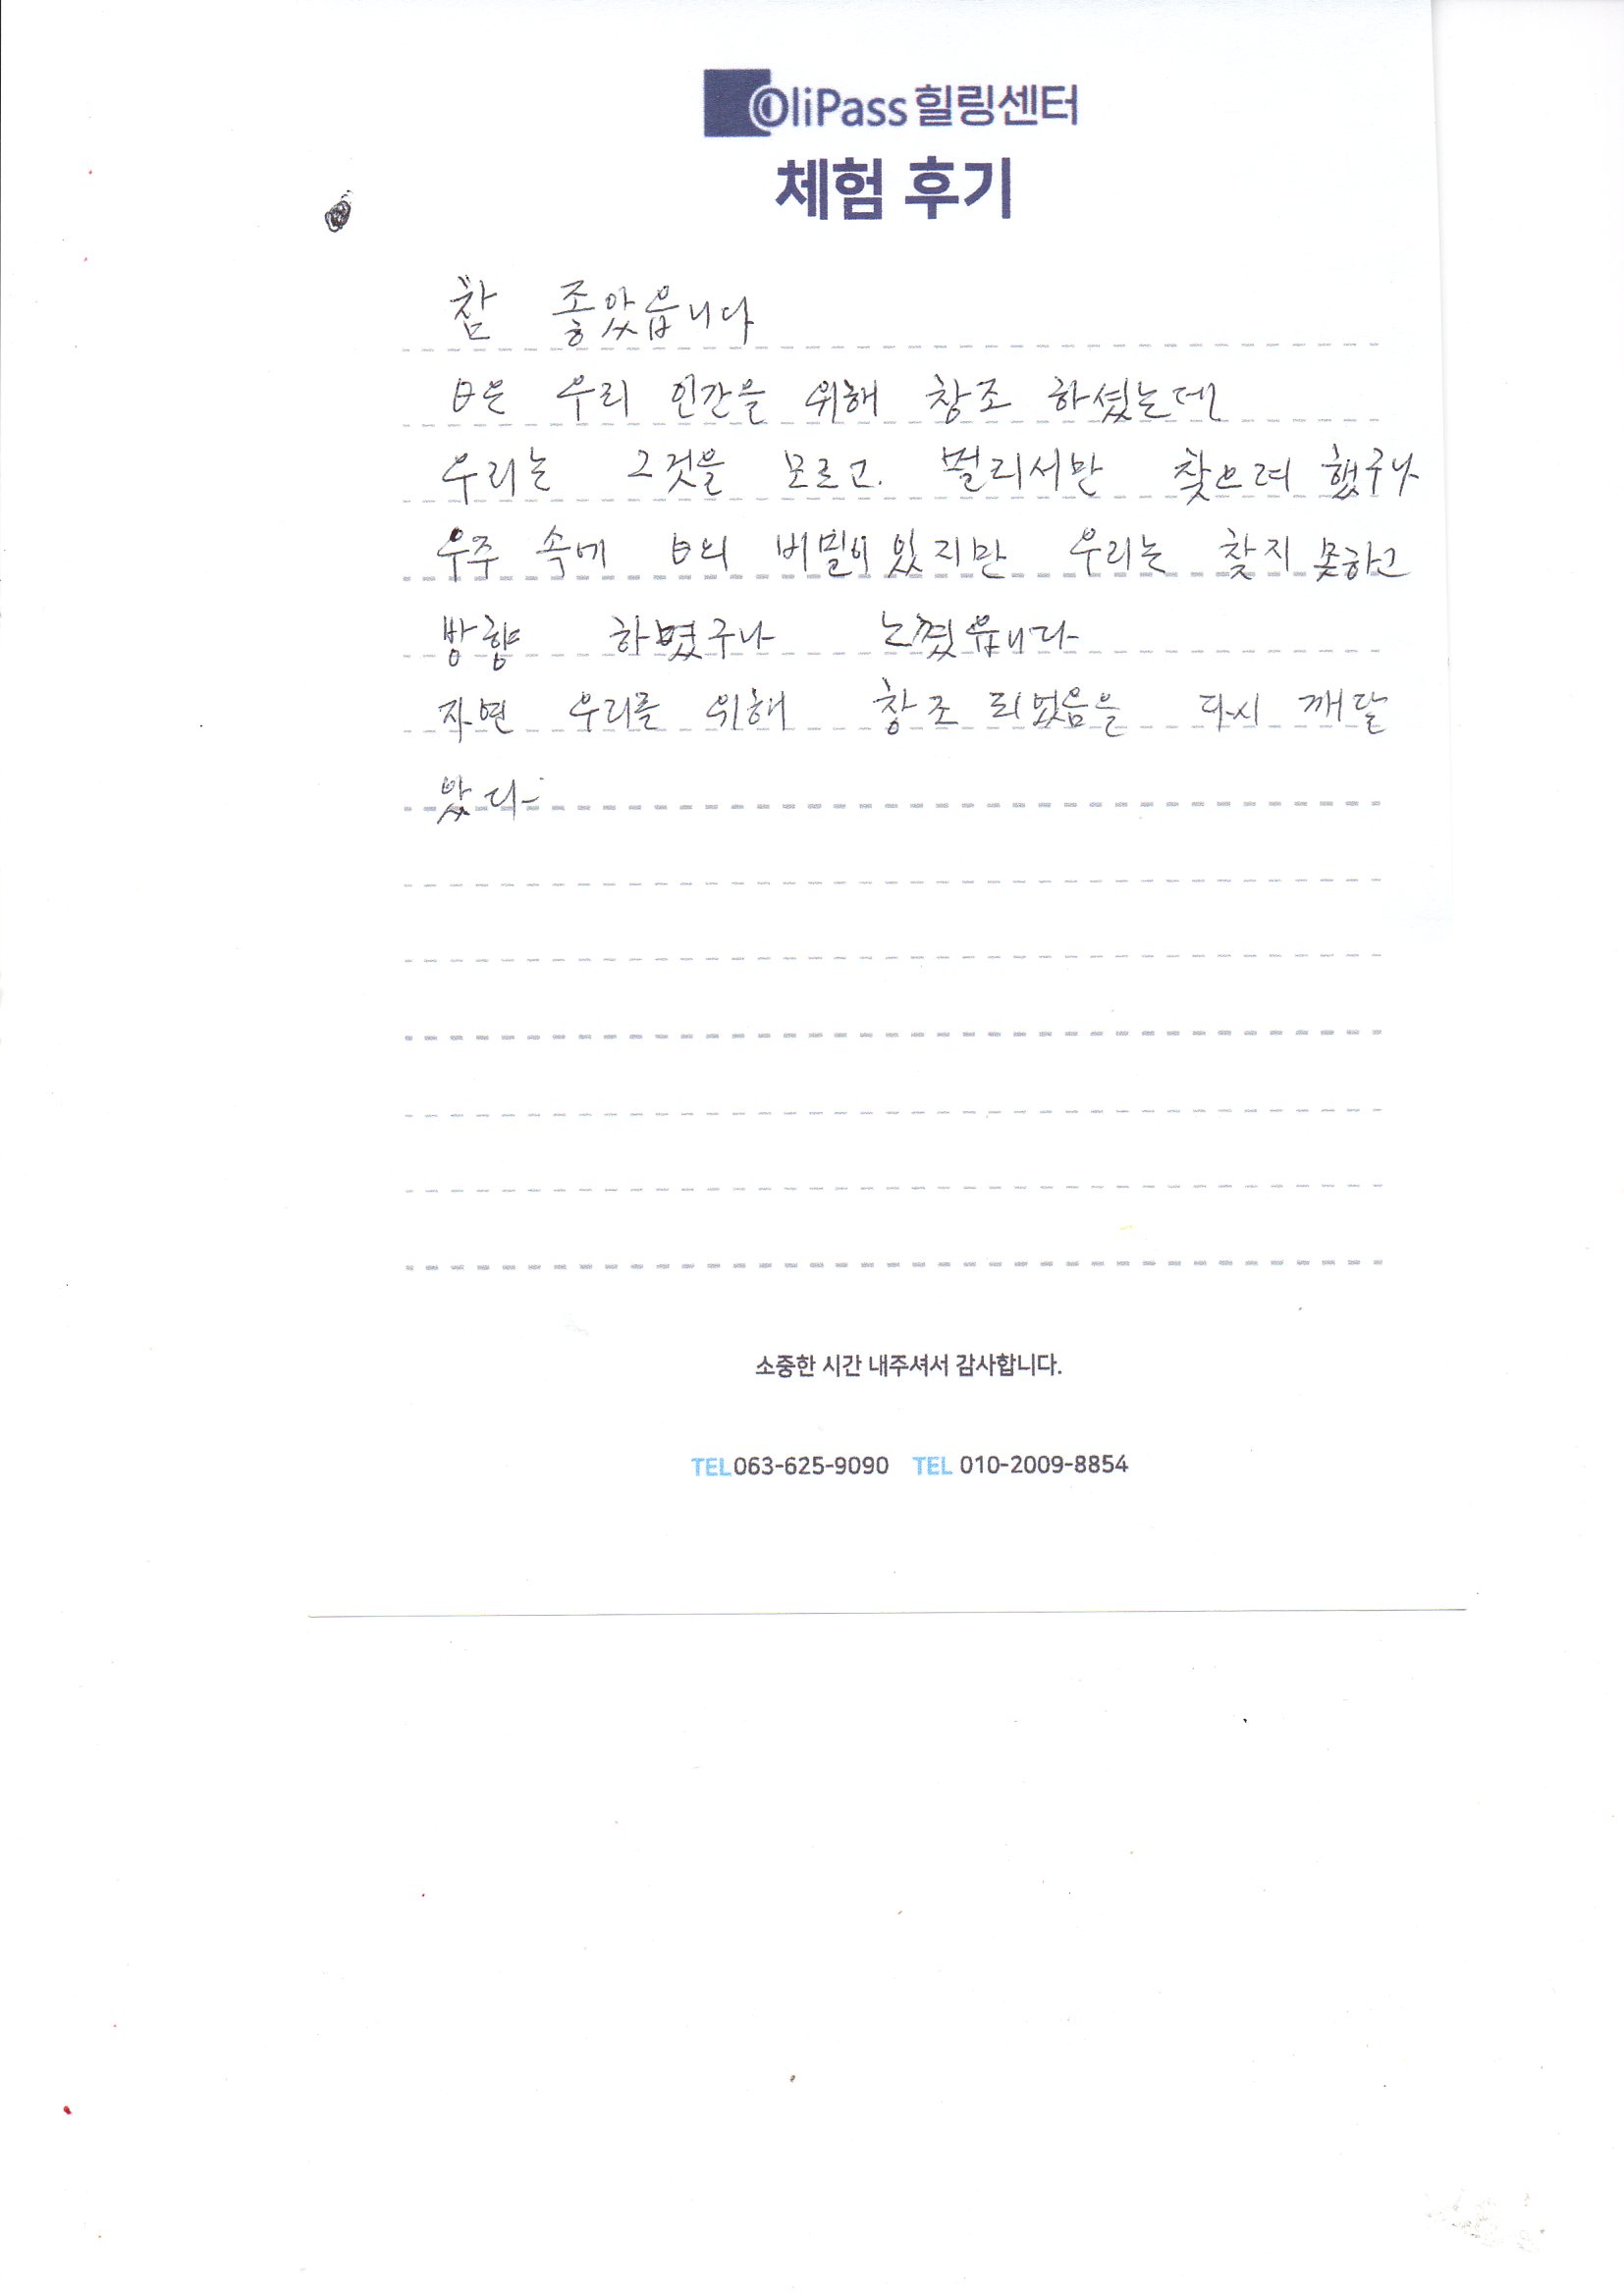 OliPass 힐링센터
체험 후기
참 좋았읍니다
우리 인간을 위해 창조 하셨는데
우리는 그것을 모르고. 멀리서만 찾으려 했구나
우주 속에 비밀이 있지만 우리는 찾지 못하고
방향 하였구나 느꼈읍니다
자연 우리를 위해 창조 되었음을 다시 깨달
았다
소중한 시간 내주셔서 감사합니다.
TEL 063-625-9090 TEL 010-2009-8854